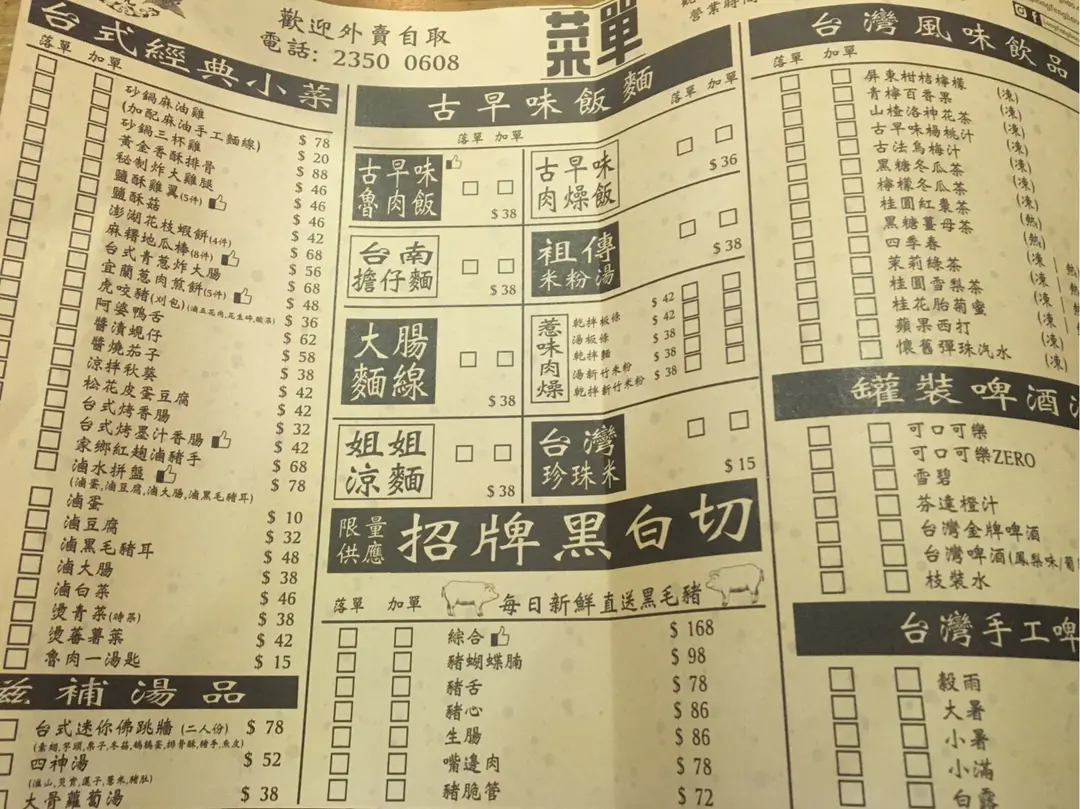 歡迎外賣自取
電話: 2350 0608
菜單
營業時間
台式經典小菜
落單 加單
砂鍋麻油雞 $ 78
(加配麻油手工麵線) $ 20
砂鍋三杯雞 $ 88
黃金香酥排骨 $ 46
秘制炸大雞腿 $ 46
鹽酥雞翼(5件) $ 46
鹽酥菇 $ 42
澎湖花枝蝦餅(4件) $ 68
麻糬地瓜棒(8件) $ 56
台式青蔥炸大腸 $ 68
宜蘭蔥肉煎餅(5件) $ 48
虎咬豬(刈包)(滷五花肉,花生碎,酸菜) $ 36
阿婆鴨舌 $ 62
醬漬蜆仔 $ 58
醬燒茄子 $ 38
涼拌秋葵 $ 42
松花皮蛋豆腐 $ 42
台式烤香腸 $ 32
台式烤墨汁香腸 $ 42
家鄉紅麴滷豬手 $ 68
滷水拼盤 $ 78
(滷蛋,滷豆腐,滷大腸,滷黑毛豬耳)
滷蛋 $ 10
滷豆腐 $ 32
滷黑毛豬耳 $ 48
滷大腸 $ 38
滷白菜 $ 46
燙青菜(時菜) $ 38
燙蕃薯菜 $ 42
魯肉一湯匙 $ 15
滋補湯品
台式迷你佛跳牆 (二人份) $ 78
(素翅,芋頭,栗子,冬菇,鵪鶉蛋,排骨酥,豬手,魚皮)
四神湯 $ 52
(淮山,芡實,蓮子,薏米,豬肚)
大骨蘿蔔湯 $ 38
古早味飯麵
落單 加單
落單 加單
古早味魯肉飯 $ 38
古早味肉燥飯 $ 36
台南擔仔麵 $ 38
祖傳米粉湯 $ 38
大腸麵線 $ 38
惹味肉燥
乾拌板條 $ 42
湯板條 $ 42
乾拌麵 $ 38
湯新竹米粉 $ 38
乾拌新竹米粉 $ 38
姐姐涼麵 $ 38
台灣珍珠米 $ 15
限量供應 招牌黑白切
落單 加單 每日新鮮直送黑毛豬
綜合 $ 168
豬蝴蝶腩 $ 98
豬舌 $ 78
豬心 $ 86
生腸 $ 86
嘴邊肉 $ 78
豬脆管 $ 72
台灣風味飲品
落單 加單
屏東柑桔檸檬 (凍)
青檸百香果 (凍)
山楂洛神花茶 (凍)
古早味楊桃汁 (凍)
古法烏梅汁 (凍)
黑糖冬瓜茶 (凍)
檸檬冬瓜茶 (凍)
桂圓紅棗茶 (熱)
黑糖薑母茶 (熱)
四季春 (凍)
茉莉綠茶 (凍)
桂圓雪梨茶 (凍)
桂花胎菊蜜 (凍)
蘋果西打 (凍)
懷舊彈珠汽水 (凍)
罐裝啤酒
可口可樂
可口可樂ZERO
雪碧
芬達橙汁
台灣金牌啤酒
台灣啤酒(鳳梨味/葡
枝裝水
台灣手工啤
穀雨
大暑
小暑
小滿
白露